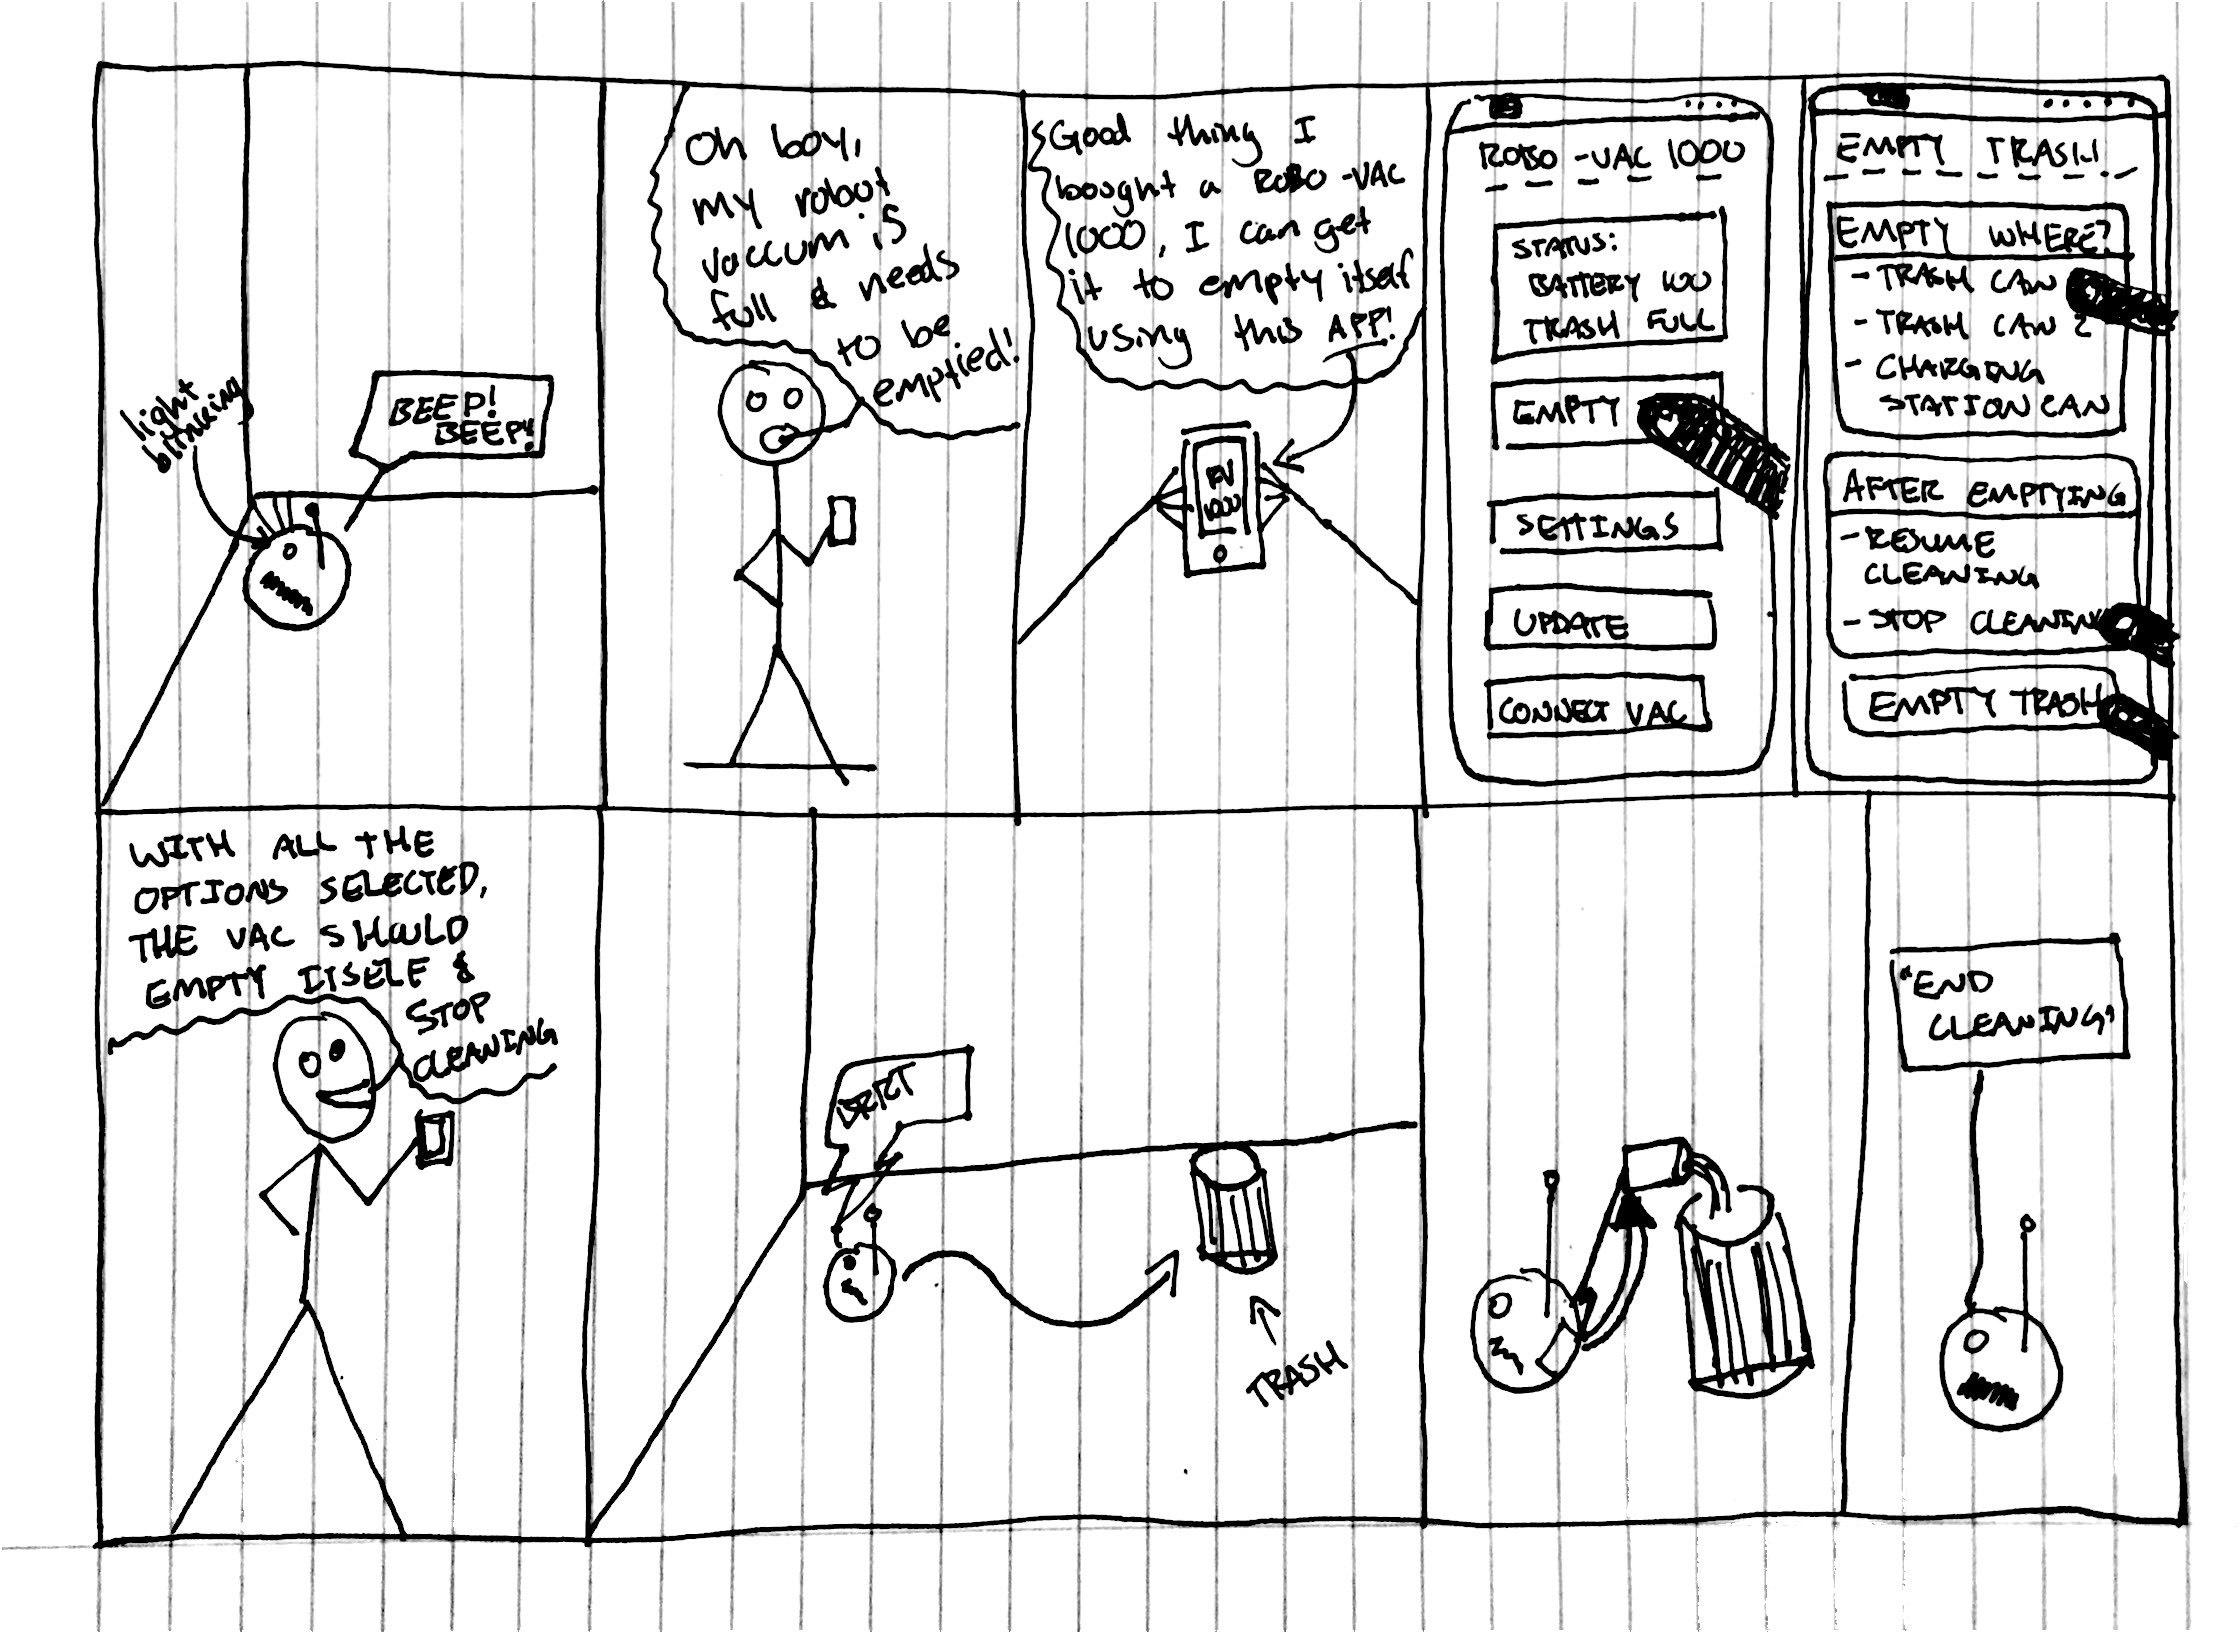 light
blinking
BEEP!
BEEP!
Oh boy,
my robot
vaccum is
full & needs
to be
emptied!
Good thing I
bought a ROBO-VAC
1000, I can get
it to empty itself
using this APP!
RV
1000
ROBO-VAC 1000
STATUS:
BATTERY 100
TRASH FULL
EMPTY
SETTINGS
UPDATE
CONNECT VAC
EMPTY TRASH
EMPTY WHERE?
- TRASH CAN
- TRASH CAN 2
- CHARGING
STATION CAN
AFTER EMPTYING
- RESUME
CLEANING
- STOP CLEANING
EMPTY TRASH
WITH ALL THE
OPTIONS SELECTED,
THE VAC SHOULD
EMPTY ITSELF &
STOP
CLEANING
TRASH
"END
CLEANING"